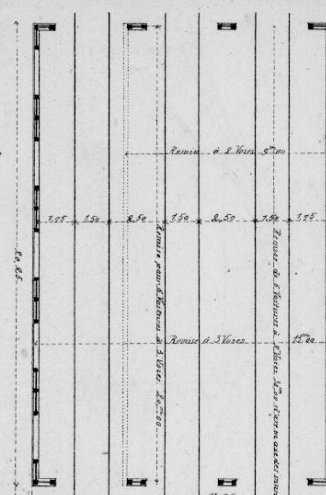 Remise à 2 Voies 9m00
1,75 1,50 2,50 1,50 2,50 1,50 1,75
20,25
Remise pour 6 Voitures à 3 Voies 20m00
Remise de 6 Voitures à 2 Voies
Remise à 3 Voies 13m00